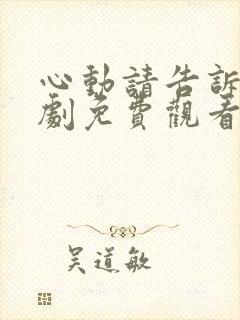 心動請告訴
劇免費觀看
吳道敏